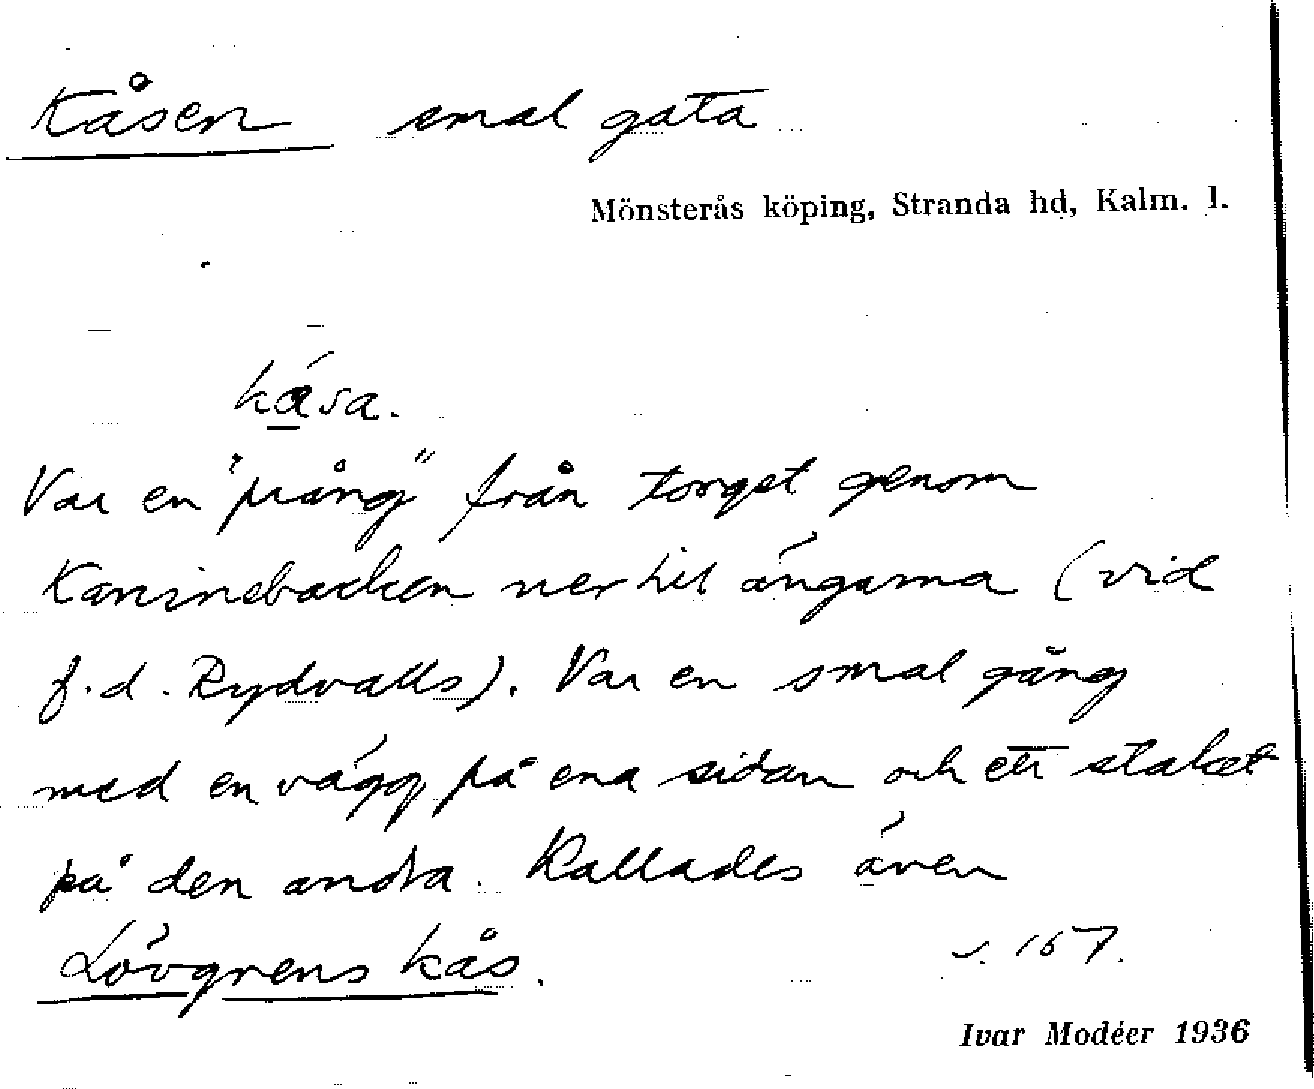 Kåsen smal gata
Mönsterås köping, Stranda hd, Kalm. l.
kåsa.
Var en "prång" från torget genom
Kaninebacken ner till ängarna (vid
f.d. Rydvalls). Var en smal gång
med en vägg på ena sidan och ett staket
på den andra. Kallades även
Lövgrens kås.
s. 167.
Ivar Modéer 1936